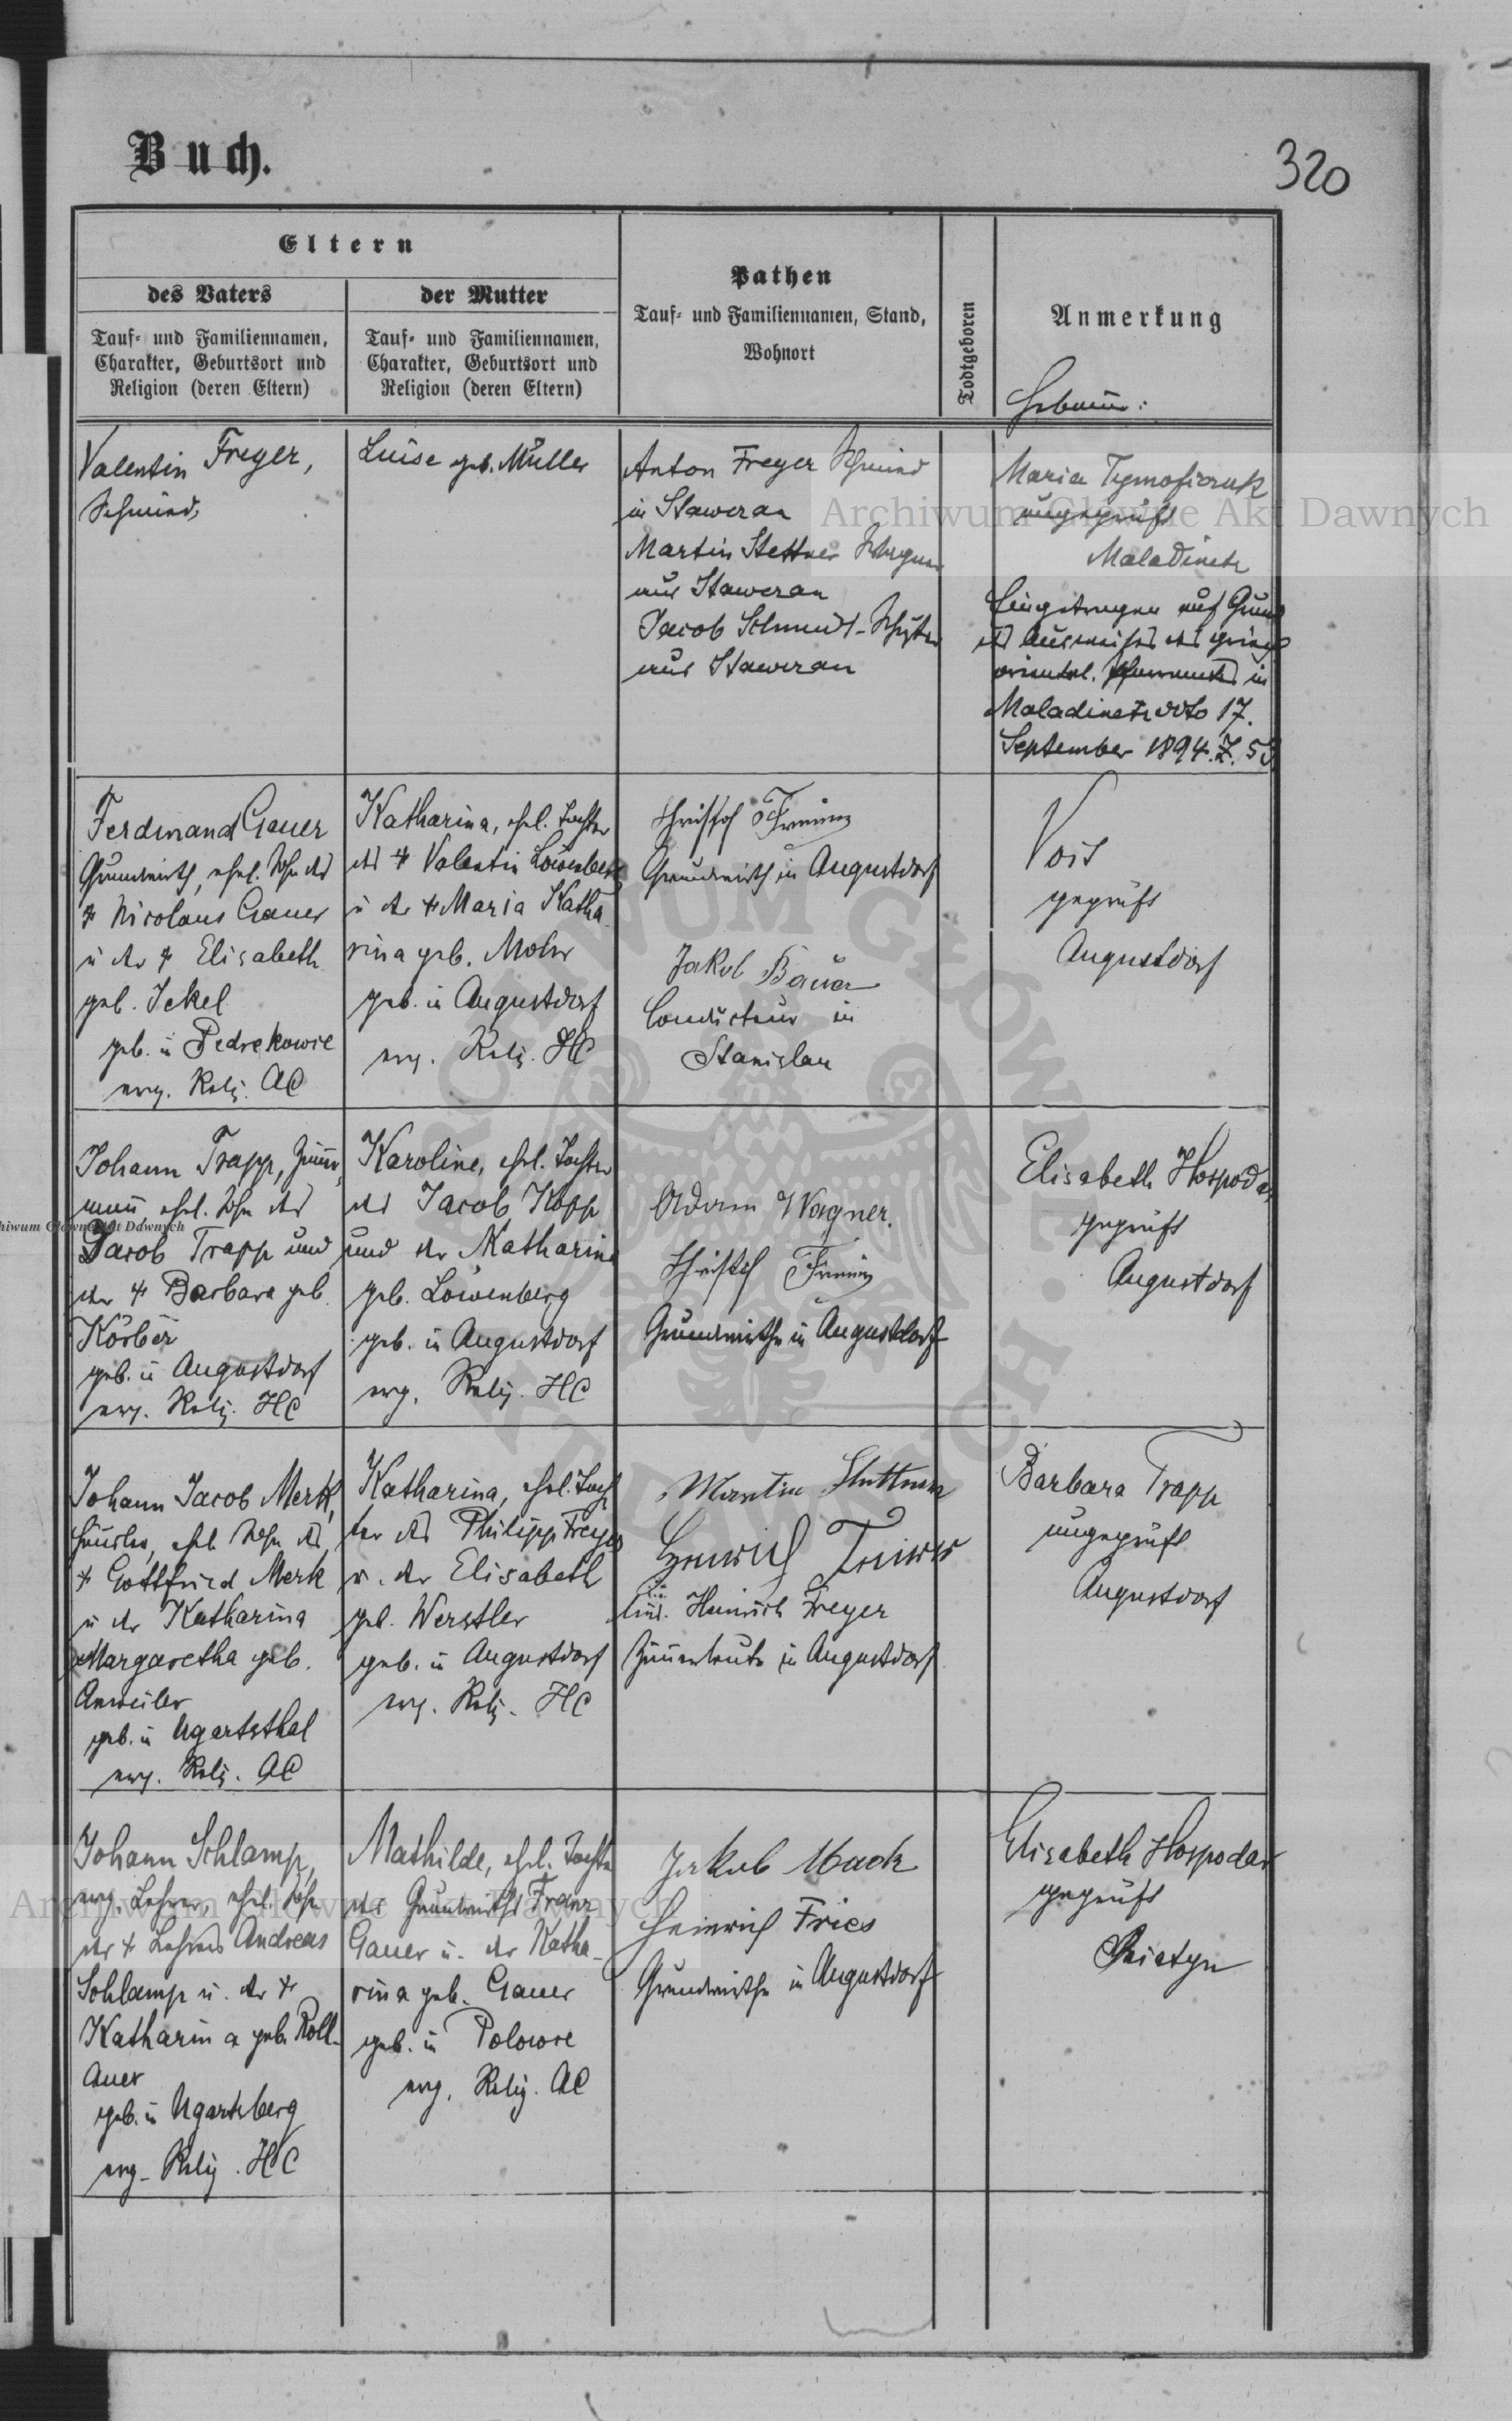 Buch.
320
Eltern
des Vaters
Tauf- und Familiennamen,
Charakter, Geburtsort und
Religion (deren Eltern)
der Mutter
Tauf- und Familiennamen,
Charakter, Geburtsort und
Religion (deren Eltern)
Pathen
Tauf- und Familiennamen, Stand,
Wohnort
Todtgeboren
Anmerkung
Valentin Freyer,
Schmied
Luise geb. Müller
Anton Freyer Schmied
in Staweran
Martin Stettner
aus Staweran
Jacob Schmidt
aus Staweran
Maria Tymoficzuk
ungeprüft
Maladinetz
Eingetragen auf Grund
des Ausweises des griech
oriental. in
Maladinetz ddto 17.
September 1894. Z. 53
Ferdinand Gauer
Grundwirth, ehel. Sohn des
† Nicolaus Gauer
u. der † Elisabeth
geb. Jekel
geb. in
evg. Relig. AC
Katharina, ehel. Tochter
des † Valentin Löwenberg
u. der † Maria Katha
rina geb. Mohr
geb. in Augustdorf
evg. Relig. HC
Christof
Grundwirth in Augustdorf
Jakob Bauer
Conducteur in
Stanislau
geprüft
Augustdorf
Johann Trapp, Zimmer
mann, ehel. Sohn des
Jacob Trapp und
der † Barbara geb.
Körber
geb. in Augustdorf
evg. Relig. HC
Karoline, ehel. Tochter
des Jacob Kopp
und der Katharina
geb. Löwenberg
geb. in Augustdorf
evg. Relig. HC
Adam Wagner.
Christof
Grundwirthe in Augustdorf
Elisabeth Hospodar
geprüft
Augustdorf
Johann Jacob Merk,
Häusler, ehel. Sohn des
† Gottfried Merk
u. der Katharina
Margaretha geb.
Anweiler
geb. in Ugartsthal
evg. Relig. AC
Katharina, ehel. Toch
ter des Philipp Freyer
u. der Elisabeth
geb. Werstler
geb. in Augustdorf
evg. Relig. HC
Martin
Heinrich
Heinrich Freyer
in Augustdorf
Barbara Trapp
ungeprüft
Augustdorf
Johann Schlamp,
evg. Lehrer, ehel. Sohn
des † Lehrers Andreas
Schlamp u. der †
Katharina geb. Roll-
auer
geb. in Ugartsberg
evg. Relig. HC
Mathilde, ehel. Tochter
des Grundwirths Franz
Gauer u. der Katha-
rina geb. Gauer
geb. in Polowce
evg. Relig. AC
Jakob Mack
Heinrich Fries
Grundwirthe in Augustdorf
Elisabeth Hospodar
geprüft
Sniatyn
Archiwum Główne Akt Dawnych
Archiwum Główne Akt Dawnych
ARCHIWUM GŁÓWNE AKT DAWNYCH